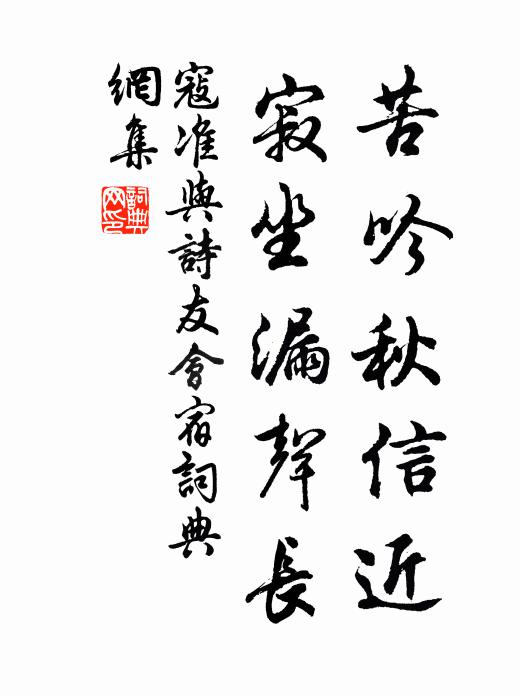 苦吟秋信近
寂坐漏聲長
寇准與詩友會宿詞典
網集
詞典
网印